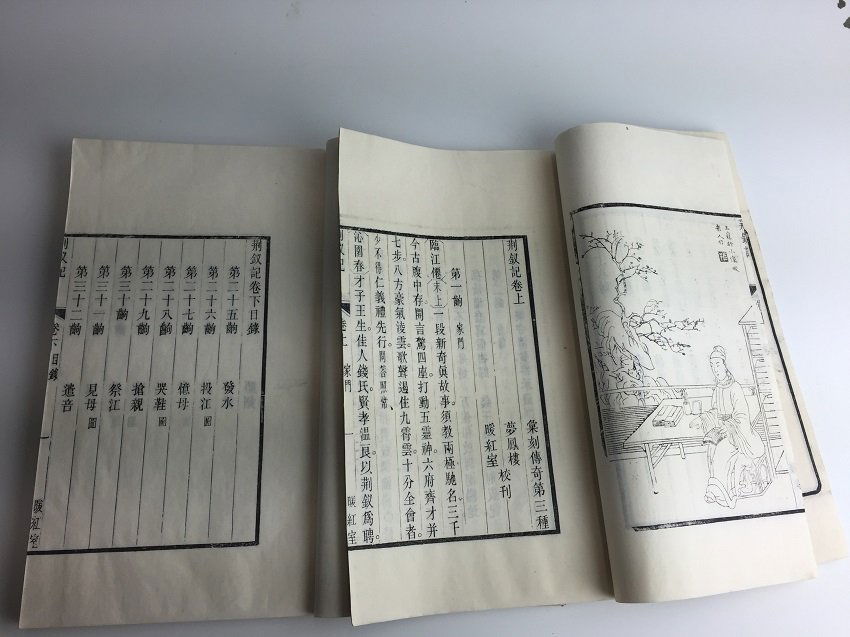 荆釵記卷上
彙刻傳奇第三種
夢鳳樓
暖紅室
校刊
第一齣 家門
臨江僊末上一段新奇眞故事。須教兩極馳名三千
今古腹中存開言驚四座打動五靈神。六府齊才并
七步。八方豪氣淩雲。歌聲遏住九霄雲。十分全會者。
少不得仁義禮先行。問荅照常、
沁園春才子王生。佳人錢氏。賢孝溫良。以荆釵爲聘
荆釵記 卷上 家門 一 暖紅室
荆釵記卷下目錄
第二十五齣 發水
第二十六齣 投江 圖
第二十七齣 憶母
第二十八齣 哭鞋 圖
第二十九齣 搶親
第三十齣 祭江
第三十一齣 見母 圖
第三十二齣 遣音
荆釵記 卷下目錄 暖紅室